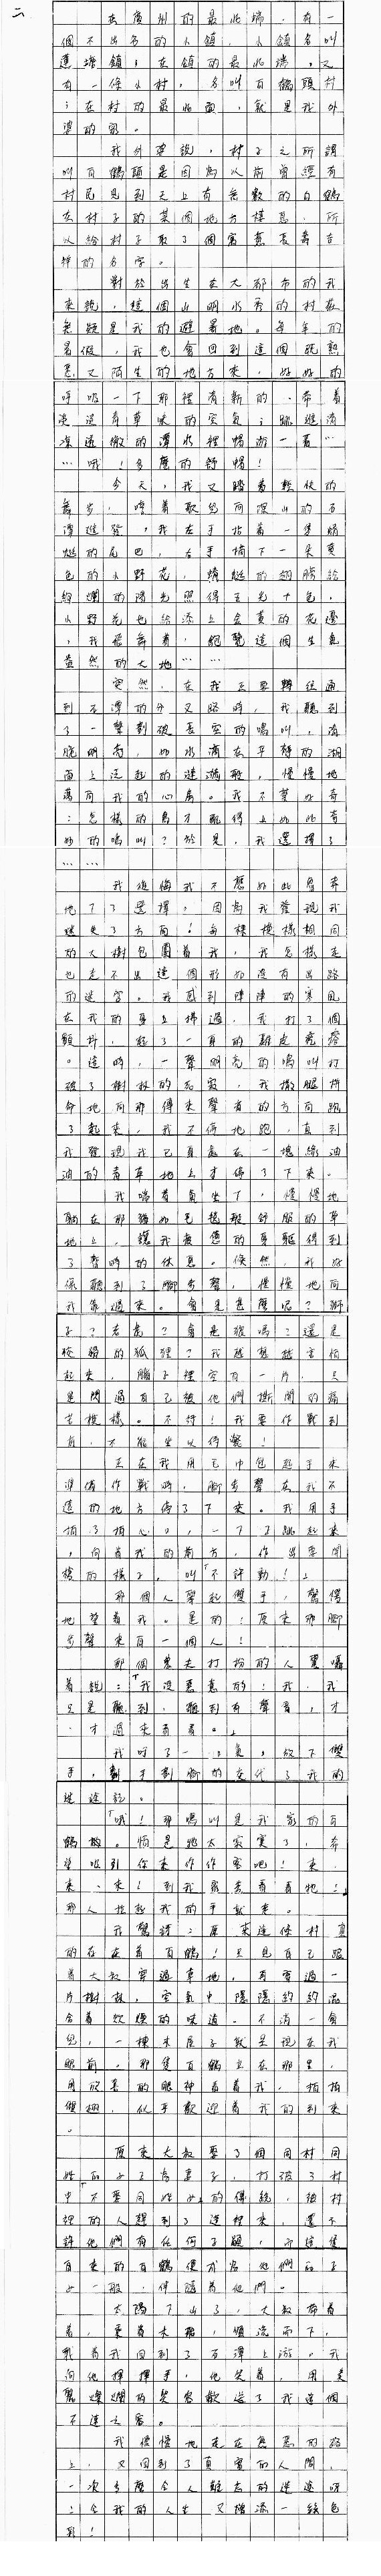 二
在廣州的最北端，有一
個不出名的小鎮，小鎮名叫
蓮塘鎮；在鎮的最北端，又
有一條小村，名叫百鶴頭村
；在村的最北面，就是我外
婆的家。
我外婆說，村子之所謂
叫百鶴頭是因為以前曾經有
村民見到天上有無數的白鶴
在村子的某個地方棲息，所
以給村子取了個寓意長壽吉
祥的名字。
對於出生在大都市的我
來說，這個山明水秀的村莊
無疑是我的避暑地。每年的
暑假，我也會回到這個既熟
悉又陌生的地方來，好好的
呼吸一下那裡有新的、帶着
淡淡青草味的空氣；跳進清
涼透徹的潭水裡暢游一番…
…哦！多麼的舒暢！
今天，我又踏着輕快的
舞步，哼着歌兒向深山的石
潭進發，我左手拈着一隻蜻
蜓的尾巴，右手摘下一朵黃
色的小野花，蜻蜓的翅膀給
絢爛的陽光照得五光十色，
小野花也給添上金黃的花邊
，我飛舞着，絕覺這個生氣
盎然的大地……
突然，在我正要轉往通
到石潭的分叉路時，我聽到
了一聲劃破長空的鳴叫，清
脆明亮，如水滴在平靜的湖
面上泛起的漣漪般，慢慢地
蕩向我的心扉。我不禁好奇
：怎樣的鳥才配得上如此奇
妙的鳴叫？於是，我選擇了
……
我後悔我不應如此魯莽
地下了選擇，因為我發現我
迷失了方向！每棵模樣相同
的大樹包圍着我，我怎樣走
也走不出這個形如沒有出路
的迷宮。我感到陣陣的寒風
在我的身上掃過，我打了個
顫抖，起了一身的雞皮疙瘩
。這時，一聲明亮的鳴叫打
破了樹林的死寂，我撒腿拼
命地向那傳來聲音的方向跑
了起來，我不停地跑，直到
我發現我已身處在一塊綠油
油的青草地上才停了下來。
我喘着氣坐下，慢慢地
躺在那猶如毛毯般舒服的草
地上，讓我疲憊的身軀得到
了暫時的休息。倏然，我好
像聽到了腳步聲，慢慢地向
我靠過來。會是甚麼呢？獅
子？老虎？會是狼嗎？還是
狡猾的狐狸？我越想越害怕
起來，腦子裡空白一片，只
是閃過自己被他們撕開的痛
苦模樣。不行！我要作戰到
底，不能坐以待斃！
正在我用毛巾包起手來
準備作戰時，腳步聲在我不
遠的地方停了下來。我用手
捂了捂心口，一下子跳起來
，向着我的前方，作出要開
槍的樣子，叫「不許動！」
那個人舉起雙手，驚愕
地望着我。是的！原來那腳
步聲來自一個人！
那個農夫打扮的人驚囁
着說：「我沒惡意的！我，我
只是聽到，聽到有聲音，才
，才過來看看。」
我呼了一口氣，放下雙
手，對手劃腳的交代了我的
迷途記。
「哦！那鳴叫是我家的百
鶴啦。怕是牠太寂寞了，希
望吸引你來作作客吧！來，
來，來！到我家去看看牠！」
那人拉起我的手就走。
我驚訝：原來這條村真
的存在着百鶴！只見自己跟
着大叔穿過草地，再穿過一
片樹林，空氣中隱隱約約混
合着炊煙的味道。不消一會
兒，一棟木屋子就呈現在我
眼前。那隻百鶴立在那里，
用欣喜的眼神看着我，拍拍
雙翅，似乎歡迎着我的到來
。
原來大叔娶了個同村同
姓的女子為妻子，打破了村
中「不娶同姓女」的傳統，被村
裡的人趕到了這裡來，還不
許他們有任何子嗣，而這隻
自來的百鶴便成為他們的子
女一般，伴隨着他們。
太陽下山了，大叔帶着
着，乘着木船，順流而下，
載着我回到了石潭上游。我
向他揮揮手，他笑着，用美
麗燦爛的笑容歡送了我這個
不速之客。
我慢慢地走在熟悉的路
上，又回到了真實的人間，
一次多麼令人難忘的迷途呀
！令我的人生又增添一絲色
彩！